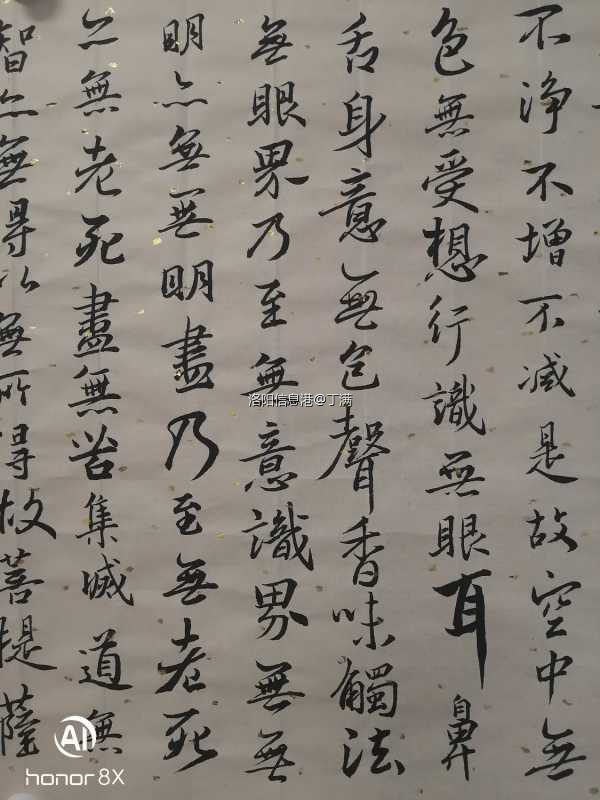 不淨不增不减是故空中無
色無受想行識無眼耳鼻
舌身意無色聲香味觸法
無眼界乃至無意識界無無
明亦無無明盡乃至無老死
亦無老死盡無苦集滅道無
智亦無得以無所得故菩提薩
洛阳信息港@丁满
AI
honor 8X